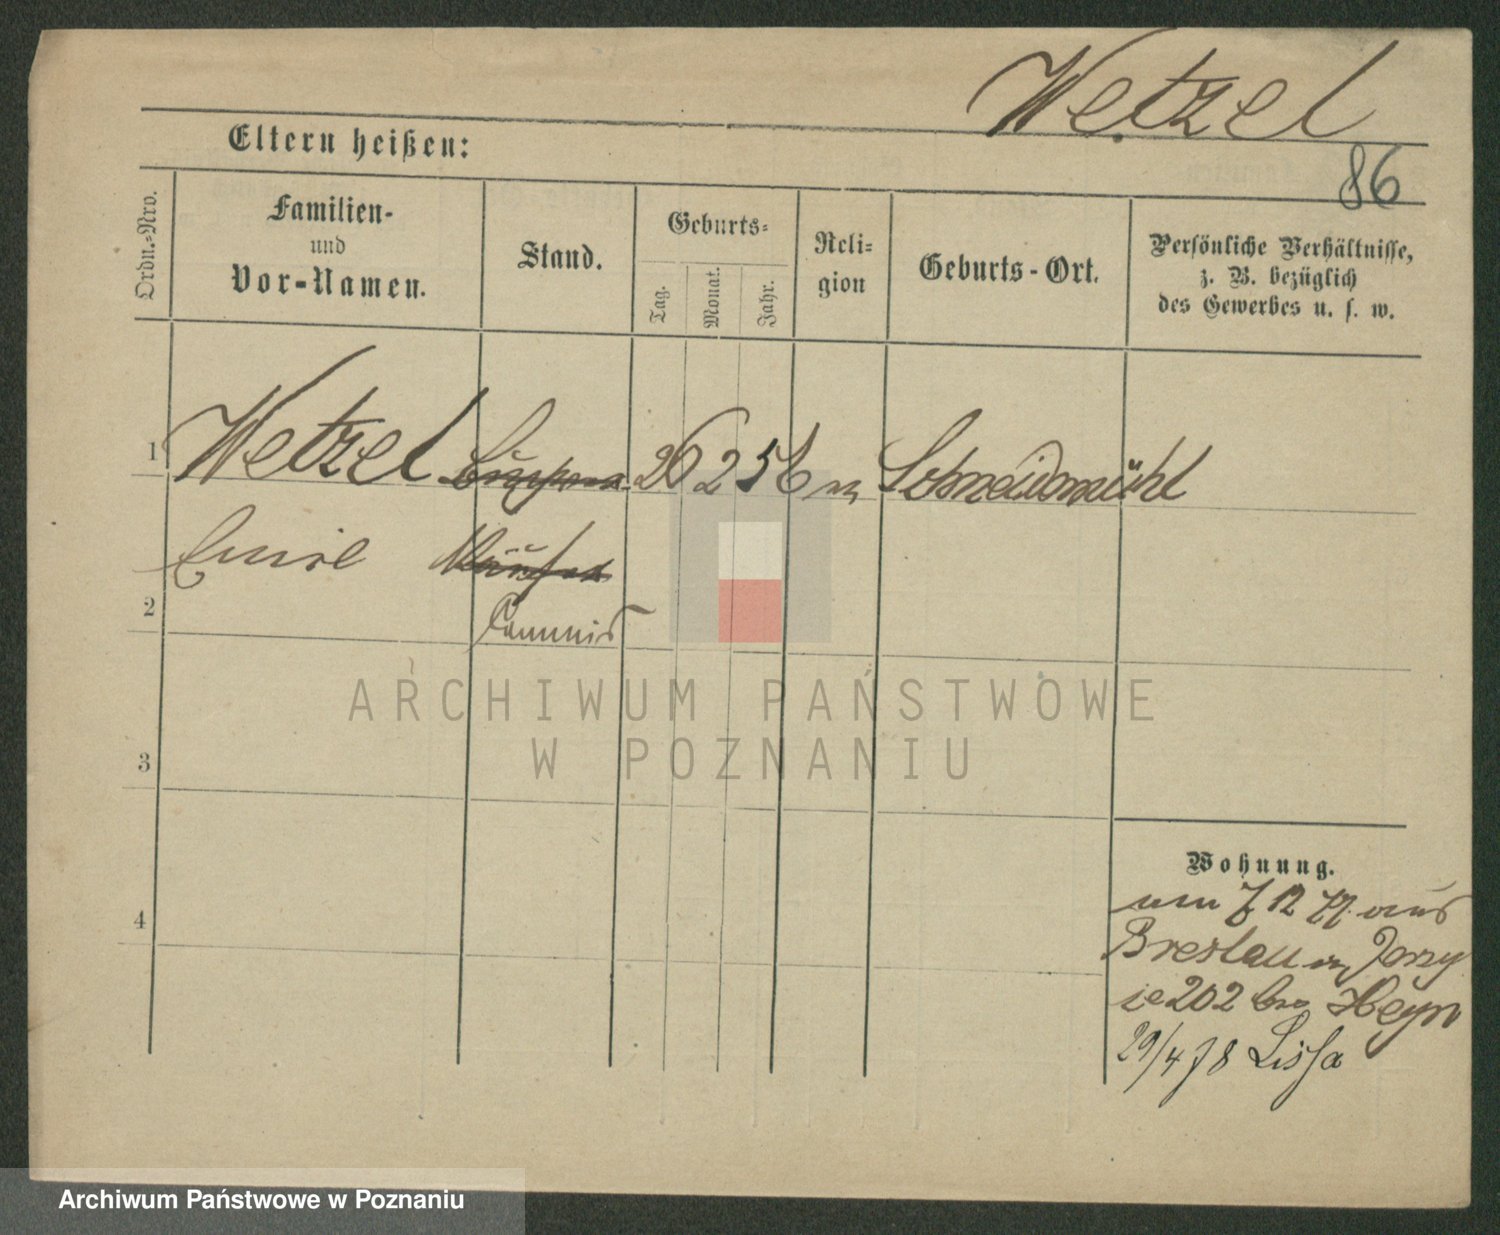 Wetzel
Eltern heißen:
86
Ordn.=Nro.
Familien-
und
Vor-Namen.
Stand.
Geburts=
Tag.
Monat.
Jahr.
Reli=
gion
Geburts-Ort.
Persönliche Verhältnisse,
z. B. bezüglich
des Gewerbes u. s. w.
1 Wetzel 26 2 56 Schneidemühl
Emil
2 Commis
ARCHIWUM PAŃSTWOWE
W POZNANIU
3
4
Wohnung.
12 77 aus
Breslau
202 Heyn
29/4 78 Lissa
Archiwum Państwowe w Poznaniu